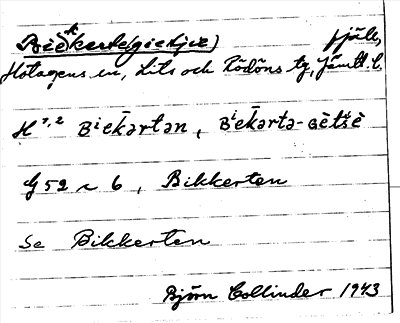 Bieⁱkerte(gietjie) fjäll,
Hotagens sn, Lits och Rödöns tg, Jämtl. l.
H 1,2 Bⁱekārtən, Bⁱekārta-Gètšè
G 52 r 6, Bikkerten
Se Bikkerten
Björn Collinder 1943